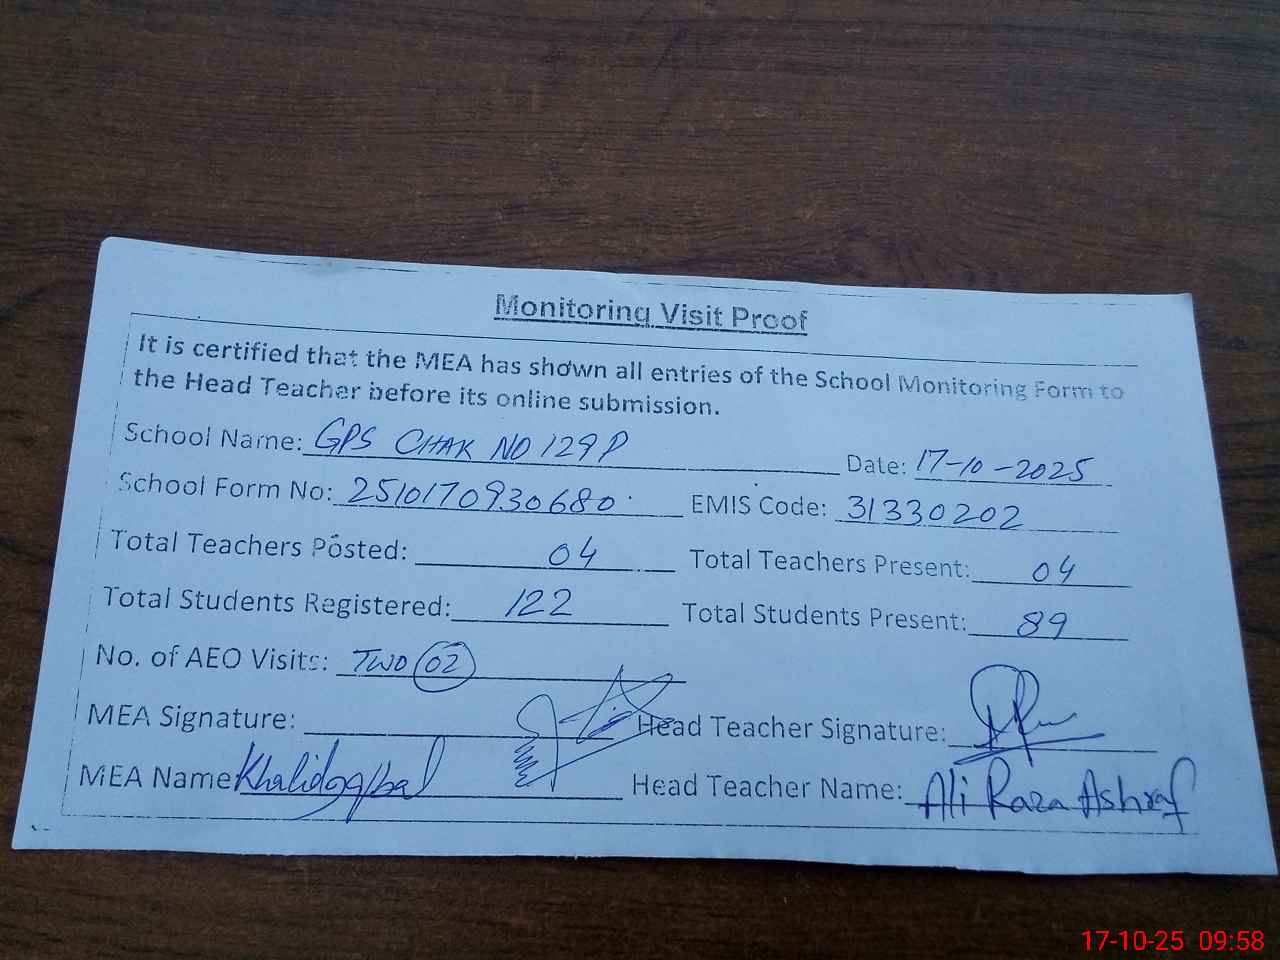 Monitoring Visit Proof
It is certified that the MEA has shown all entries of the School Monitoring Form to
the Head Teacher before its online submission.
School Name: GPS CHAK NO 129P Date: 17-10-2025
School Form No: 2510170930680 EMIS Code: 31330202
Total Teachers Posted: 04 Total Teachers Present: 04
Total Students Registered: 122 Total Students Present: 89
No. of AEO Visits: TWO 02
MEA Signature: Head Teacher Signature:
MEA Name Khalid Iqbal Head Teacher Name: Ali Raza Ashraf
17-10-25 09:58